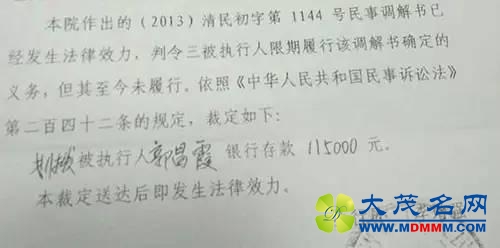 本院作出的（2013）清民初字第 1144 号民事调解书已
经发生法律效力，判令三被执行人限期履行该调解书确定的
义务，但其至今未履行。依照《中华人民共和国民事诉讼法》
第二百四十二条的规定，裁定如下：
划拨被执行人郭昌霞 银行存款 115000 元。
本裁定送达后即发生法律效力。
大茂名网
WWW.MDMMM.COM